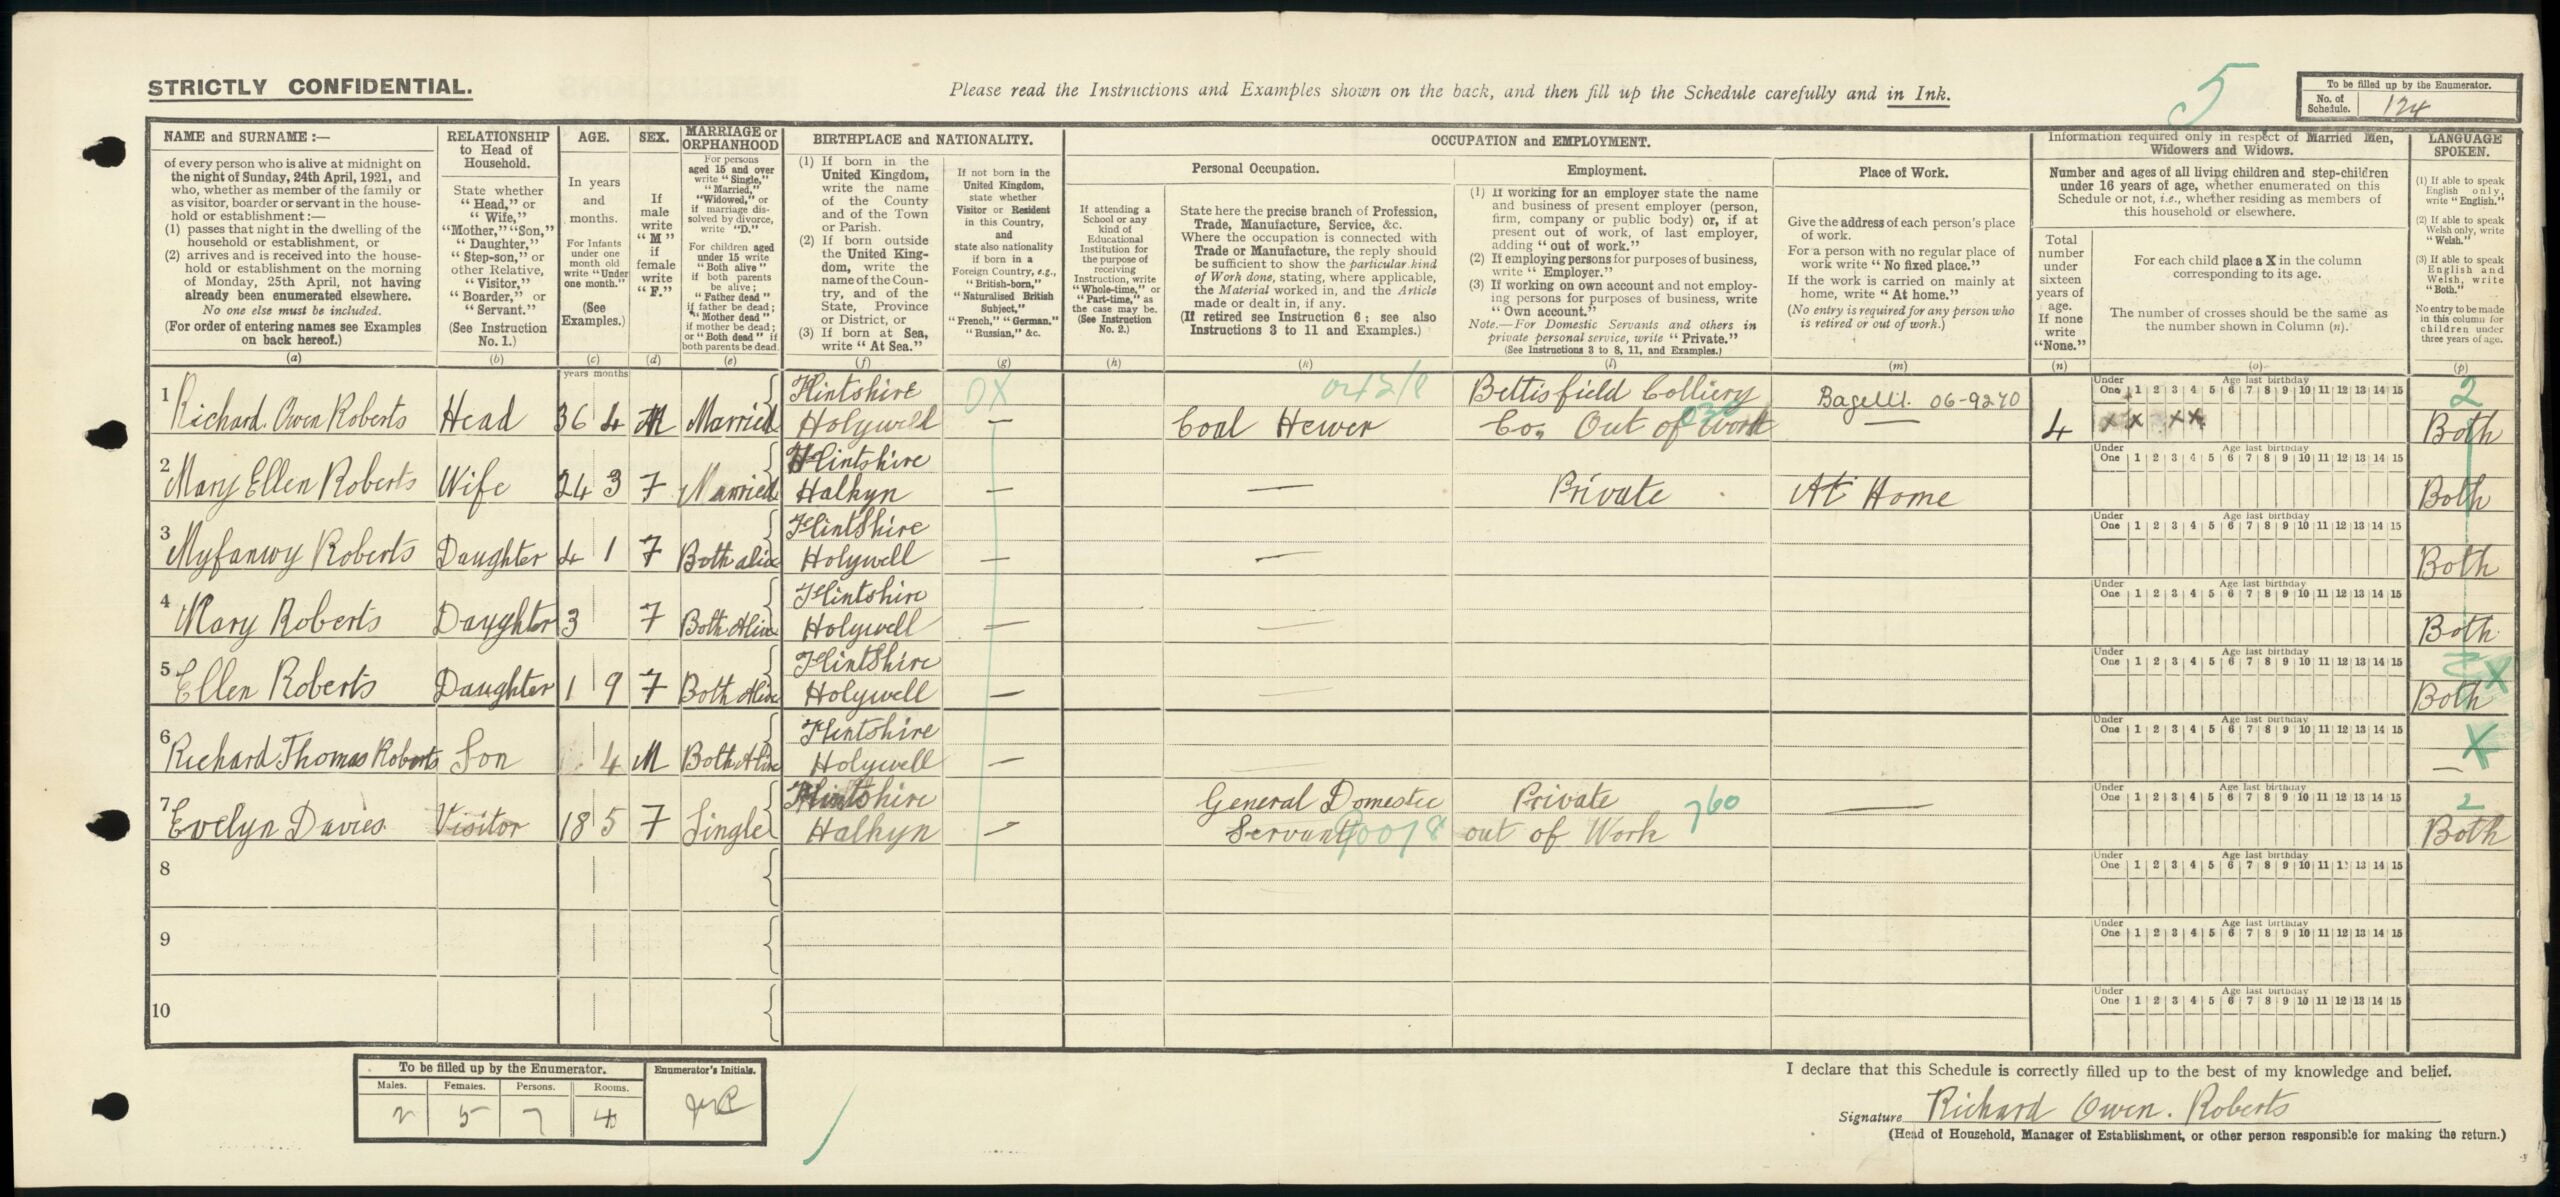 STRICTLY CONFIDENTIAL.
Please read the Instructions and Examples shown on the back, and then fill up the Schedule carefully and in Ink.
5
To be filled up by the Enumerator.
No. of Schedule. 124
NAME and SURNAME :—
of every person who is alive at midnight on
the night of Sunday, 24th April, 1921, and
who, whether as member of the family or
as visitor, boarder or servant in the house-
hold or establishment :—
(1) passes that night in the dwelling of the
household or establishment, or
(2) arrives and is received into the house-
hold or establishment on the morning
of Monday, 25th April, not having
already been enumerated elsewhere.
No one else must be included.
(For order of entering names see Examples
on back hereof.)
(a)
RELATIONSHIP
to Head of
Household.
State whether
"Head," or
"Wife,"
"Mother," "Son,"
"Daughter,"
"Step-son," or
other Relative,
"Visitor,"
"Boarder," or
"Servant."
(See Instruction
No. 1.)
(b)
AGE.
In years
and
months.
For Infants
under one
month old
write "Under
one month."
(See
Examples.)
(c)
SEX.
If
male
write
"M"
if
female
write
"F."
(d)
MARRIAGE or
ORPHANHOOD
For persons
aged 15 and over
write "Single,"
"Married,"
"Widowed," or
if marriage dis-
solved by divorce,
write "D."
For children aged
under 15 write
"Both alive"
if both parents
be alive;
"Father dead"
if father be dead;
"Mother dead"
if mother be dead;
or "Both dead" if
both parents be dead.
(e)
BIRTHPLACE and NATIONALITY.
(1) If born in the
United Kingdom,
write the name
of the County
and of the Town
or Parish.
(2) If born outside
the United King-
dom, write the
name of the Coun-
try, and of the
State, Province
or District, or
(3) If born at Sea,
write "At Sea."
(f)
If not born in the
United Kingdom,
state whether
Visitor or Resident
in this Country,
and
state also nationality
if born in a
Foreign Country, e.g.,
"British-born,"
"Naturalised British
Subject,"
"French," "German,"
"Russian," &c.
(g)
OCCUPATION and EMPLOYMENT.
If attending a
School or any
kind of
Educational
Institution for
the purpose of
receiving
Instruction, write
"Whole-time," or
"Part-time," as
the case may be.
(See Instruction
No. 2.)
(h)
Personal Occupation.
State here the precise branch of Profession,
Trade, Manufacture, Service, &c.
Where the occupation is connected with
Trade or Manufacture, the reply should
be sufficient to show the particular kind
of Work done, stating, where applicable,
the Material worked in, and the Article
made or dealt in, if any.
(If retired see Instruction 6; see also
Instructions 3 to 11 and Examples.)
(k)
Employment.
(1) If working for an employer state the name
and business of present employer (person,
firm, company or public body) or, if at
present out of work, of last employer,
adding "out of work."
(2) If employing persons for purposes of business,
write "Employer."
(3) If working on own account and not employ-
ing persons for purposes of business, write
"Own account."
Note.—For Domestic Servants and others in
private personal service, write "Private."
(See Instructions 3 to 8, 11, and Examples.)
(l)
Place of Work.
Give the address of each person's place
of work.
For a person with no regular place of
work write "No fixed place."
If the work is carried on mainly at
home, write "At home."
(No entry is required for any person who
is retired or out of work.)
(m)
Information required only in respect of Married Men,
Widowers and Widows.
Number and ages of all living children and step-children
under 16 years of age, whether enumerated on this
Schedule or not, i.e., whether residing as members of
this household or elsewhere.
Total
number
under
sixteen
years of
age.
If none
write
"None."
(n)
For each child place a X in the column
corresponding to its age.
The number of crosses should be the same as
the number shown in Column (n).
(o)
LANGUAGE
SPOKEN.
(1) If able to speak
English only,
write "English."
(2) If able to speak
Welsh only, write
"Welsh."
(3) If able to speak
English and
Welsh, write
"Both."
No entry to be made
in this column for
children under
three years of age.
(p)
years months
Under One Age last birthday 1 2 3 4 5 6 7 8 9 10 11 12 13 14 15
1 Richard Owen Roberts Head 36 4 M Married Flintshire Holywell — Coal Hewer Bettisfield Colliery Co. Out of Work Bagellt. 06-9270 — 4 X X X X Both
Under One Age last birthday 1 2 3 4 5 6 7 8 9 10 11 12 13 14 15
2 Mary Ellen Roberts Wife 24 3 F Married Flintshire Halkyn — — Private At Home Both
Under One Age last birthday 1 2 3 4 5 6 7 8 9 10 11 12 13 14 15
3 Myfanwy Roberts Daughter 4 1 F Both alive Flintshire Holywell — — Both
Under One Age last birthday 1 2 3 4 5 6 7 8 9 10 11 12 13 14 15
4 Mary Roberts Daughter 3 F Both Alive Flintshire Holywell — — Both
Under One Age last birthday 1 2 3 4 5 6 7 8 9 10 11 12 13 14 15
5 Ellen Roberts Daughter 1 9 F Both Alive Flintshire Holywell — — Both X
Under One Age last birthday 1 2 3 4 5 6 7 8 9 10 11 12 13 14 15
6 Richard Thomas Roberts Son 4 M Both Alive Flintshire Holywell — — X
Under One Age last birthday 1 2 3 4 5 6 7 8 9 10 11 12 13 14 15
7 Evelyn Davies Visitor 18 5 F Single Flintshire Halkyn — General Domestic Servant Private out of Work 760 — 2 Both
Under One Age last birthday 1 2 3 4 5 6 7 8 9 10 11 12 13 14 15
8
Under One Age last birthday 1 2 3 4 5 6 7 8 9 10 11 12 13 14 15
9
Under One Age last birthday 1 2 3 4 5 6 7 8 9 10 11 12 13 14 15
10
To be filled up by the Enumerator.
Males. Females. Persons. Rooms.
2 5 7 4
Enumerator's Initials.
I declare that this Schedule is correctly filled up to the best of my knowledge and belief.
Signature Richard Owen. Roberts
(Head of Household, Manager of Establishment, or other person responsible for making the return.)